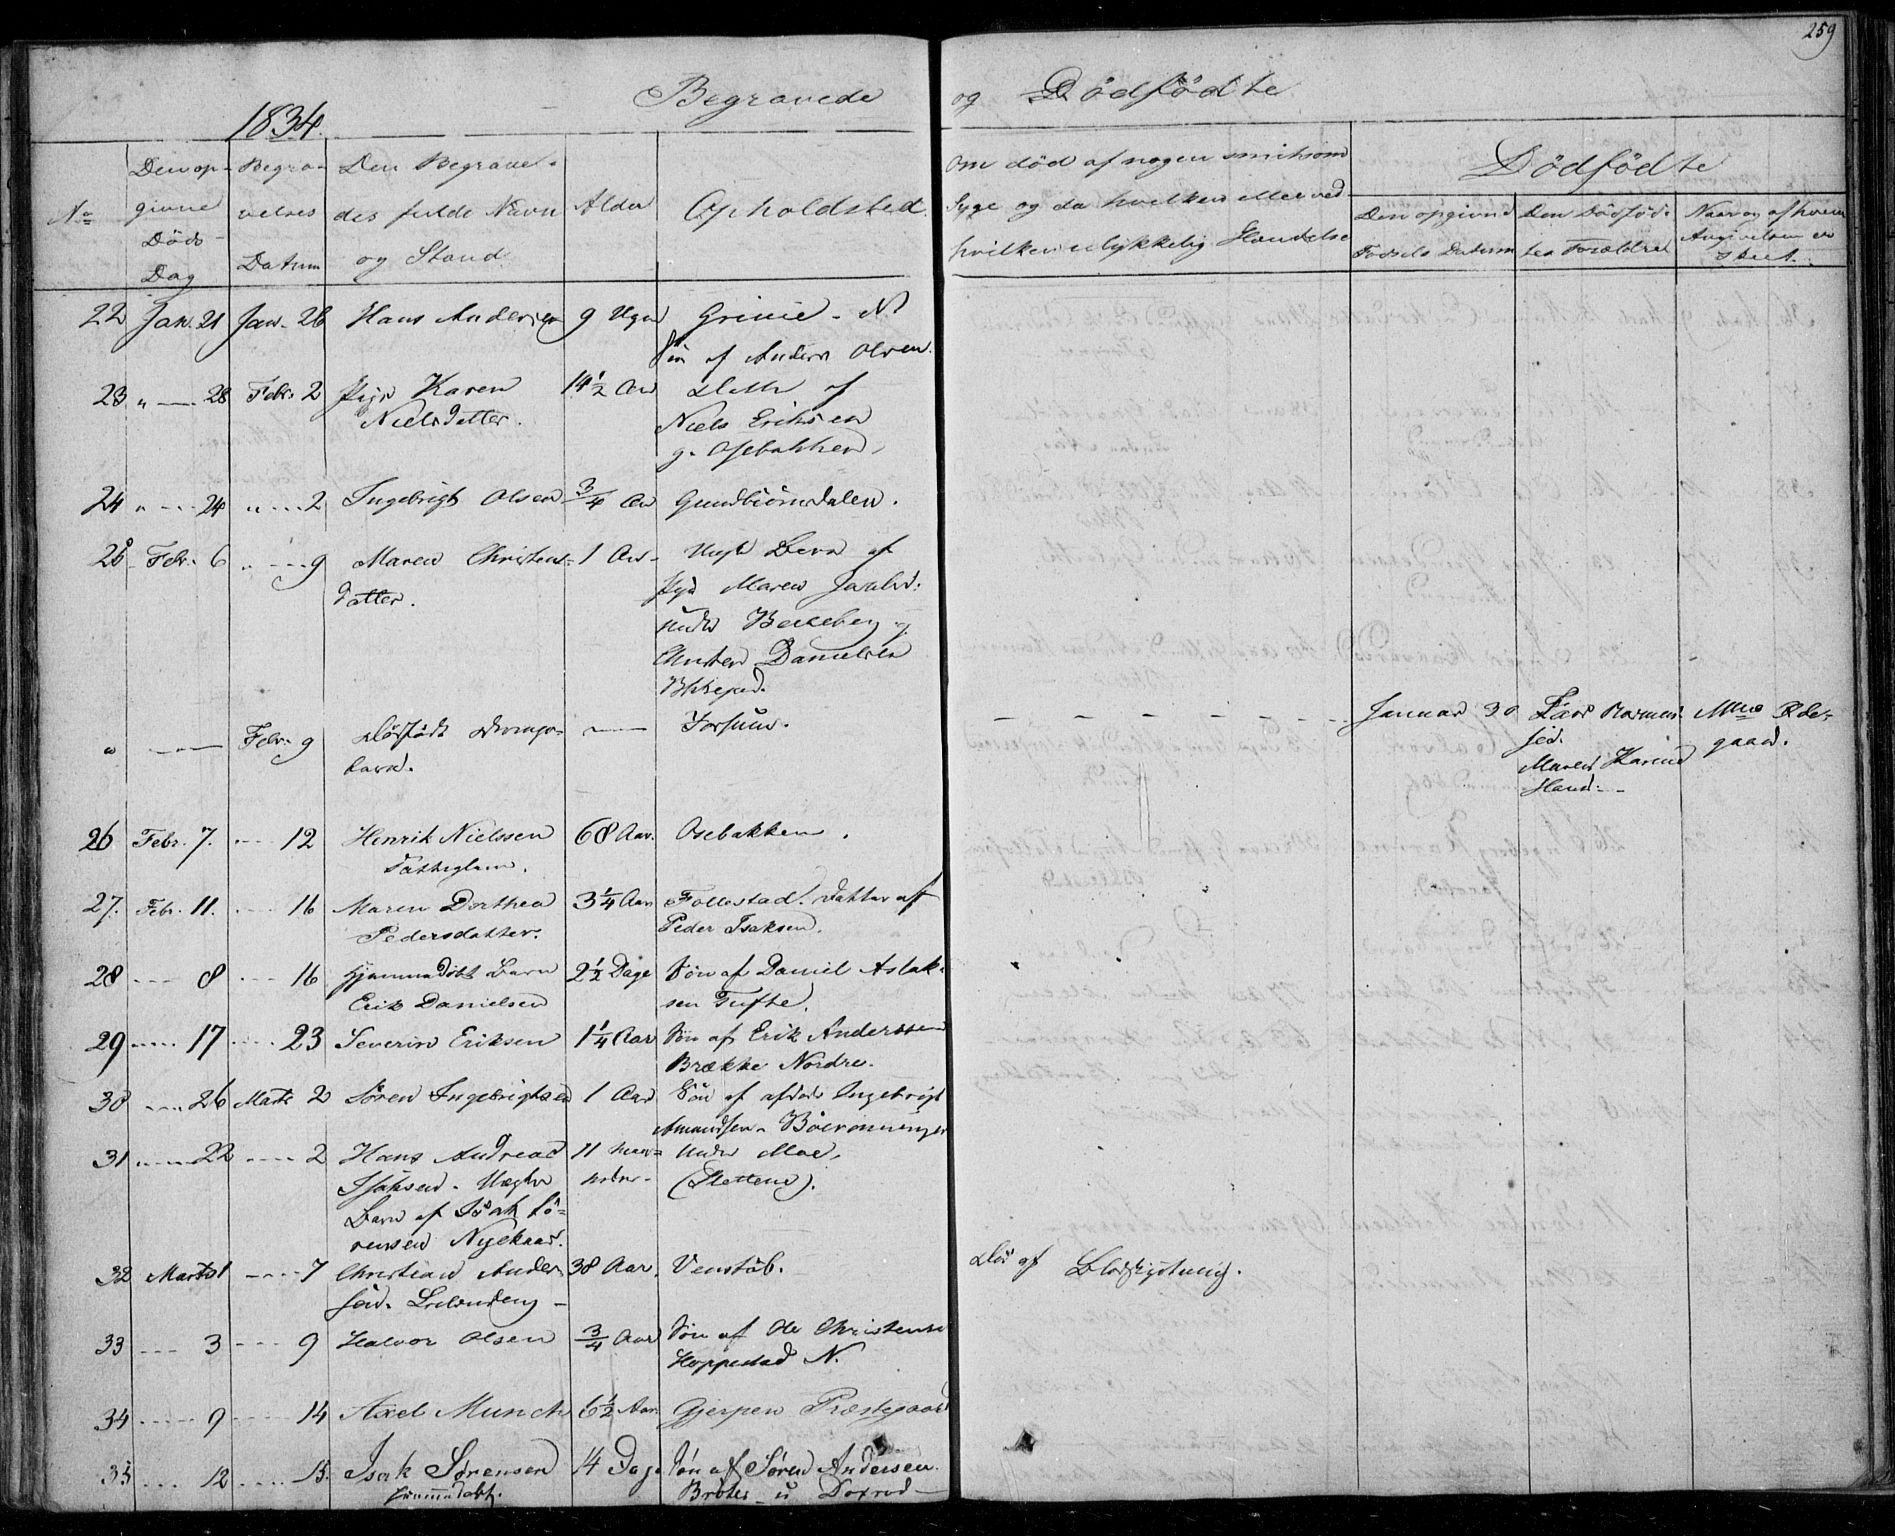 259
Begravede og Dødfødte
1834.
No
Den op-
givne
Døds
Dag
Begra-
velses
Datum
Den Begravel-
des fulde Navn
og Stand
Alder
Opholdsted.
Om død af nogen smitsom
Syge og da hvilken eller ved
hvilken ulykkelig Hændelse
Dødfødte
Den opgivne
Fødsels Datum
Den Dødfød-
tes Forældre
Naar og af hvem
Angivelsen er
skeet.
22 Jan. 21 Jan. 26 Hans Andersen 9 Uger Grinie - N
Søn af Anders Olsen.
23 " — 28 Febr. 2 Pige Karen 14 1/2 Aar Datter af
Nielsdatter. Niels Eriksen
g. Osebakken
24 " --- 24 " --- 2 Ingebrigt Olsen 3/4 Aar Gundbiørnsdalen.
25 Febr. 6 " --- 9 Maren Christens- 1 Aar Uægte Barn af
datter. Pige Maren Jacobsd:
under Bekkeberg og
Christen Danielsen
" — Febr. 9 Dødfødt Drenge- — Forsund. - - - - - Januar 30 Lars Rasmus-
barn. sen.
Maren Karine
Hansd: -
gaard.
26 Febr. 7. --- 12 Henrik Nielssen 68 Aar. Osebakken.
Fattiglem.
27. Febr. 11. --- 16 Maren Dorthea 3 1/4 Aar Follestad. Datter af
Pedersdatter. Peder Isaksen.
28 --- 8 --- 16 Hjemmedøbt Barn 2 1/2 Dage Søn af Daniel Aslak-
Erik Danielsen sen Tufte.
29 --- 17 --- 23 Severin Eriksen 1 1/4 Aar Søn af Erik Anderssen
Brække Nordre.
30 --- 26 Marts 2 Søren Ingebrigtsen 1 Aar Søn af afdøde Ingebrigt
Amundsen - Böleronningen
31 --- 22 --- 2 Hans Andreas 11 Maa- under Moe,
Isaksen. Uægte neder - (Sletten).
Barn af Isak Sö-
rensen
32 Marts 1 --- 7 Christian Ander- 38 Aar. Venstöb. Död af Blodstyrtning.
sen.
33 --- 3 --- 9 Halvor Olsen 3/4 Aar Søn af Ole Christensen
Hoppestad N.
34 --- 9 --- 14 Axel Munch 6 1/2 Aar. Gjerpen Præstegaard
35 --- 12 --- 15. Isak Sørensen 14 Dage Søn af Søren Andersen.
hjemmedøbt.